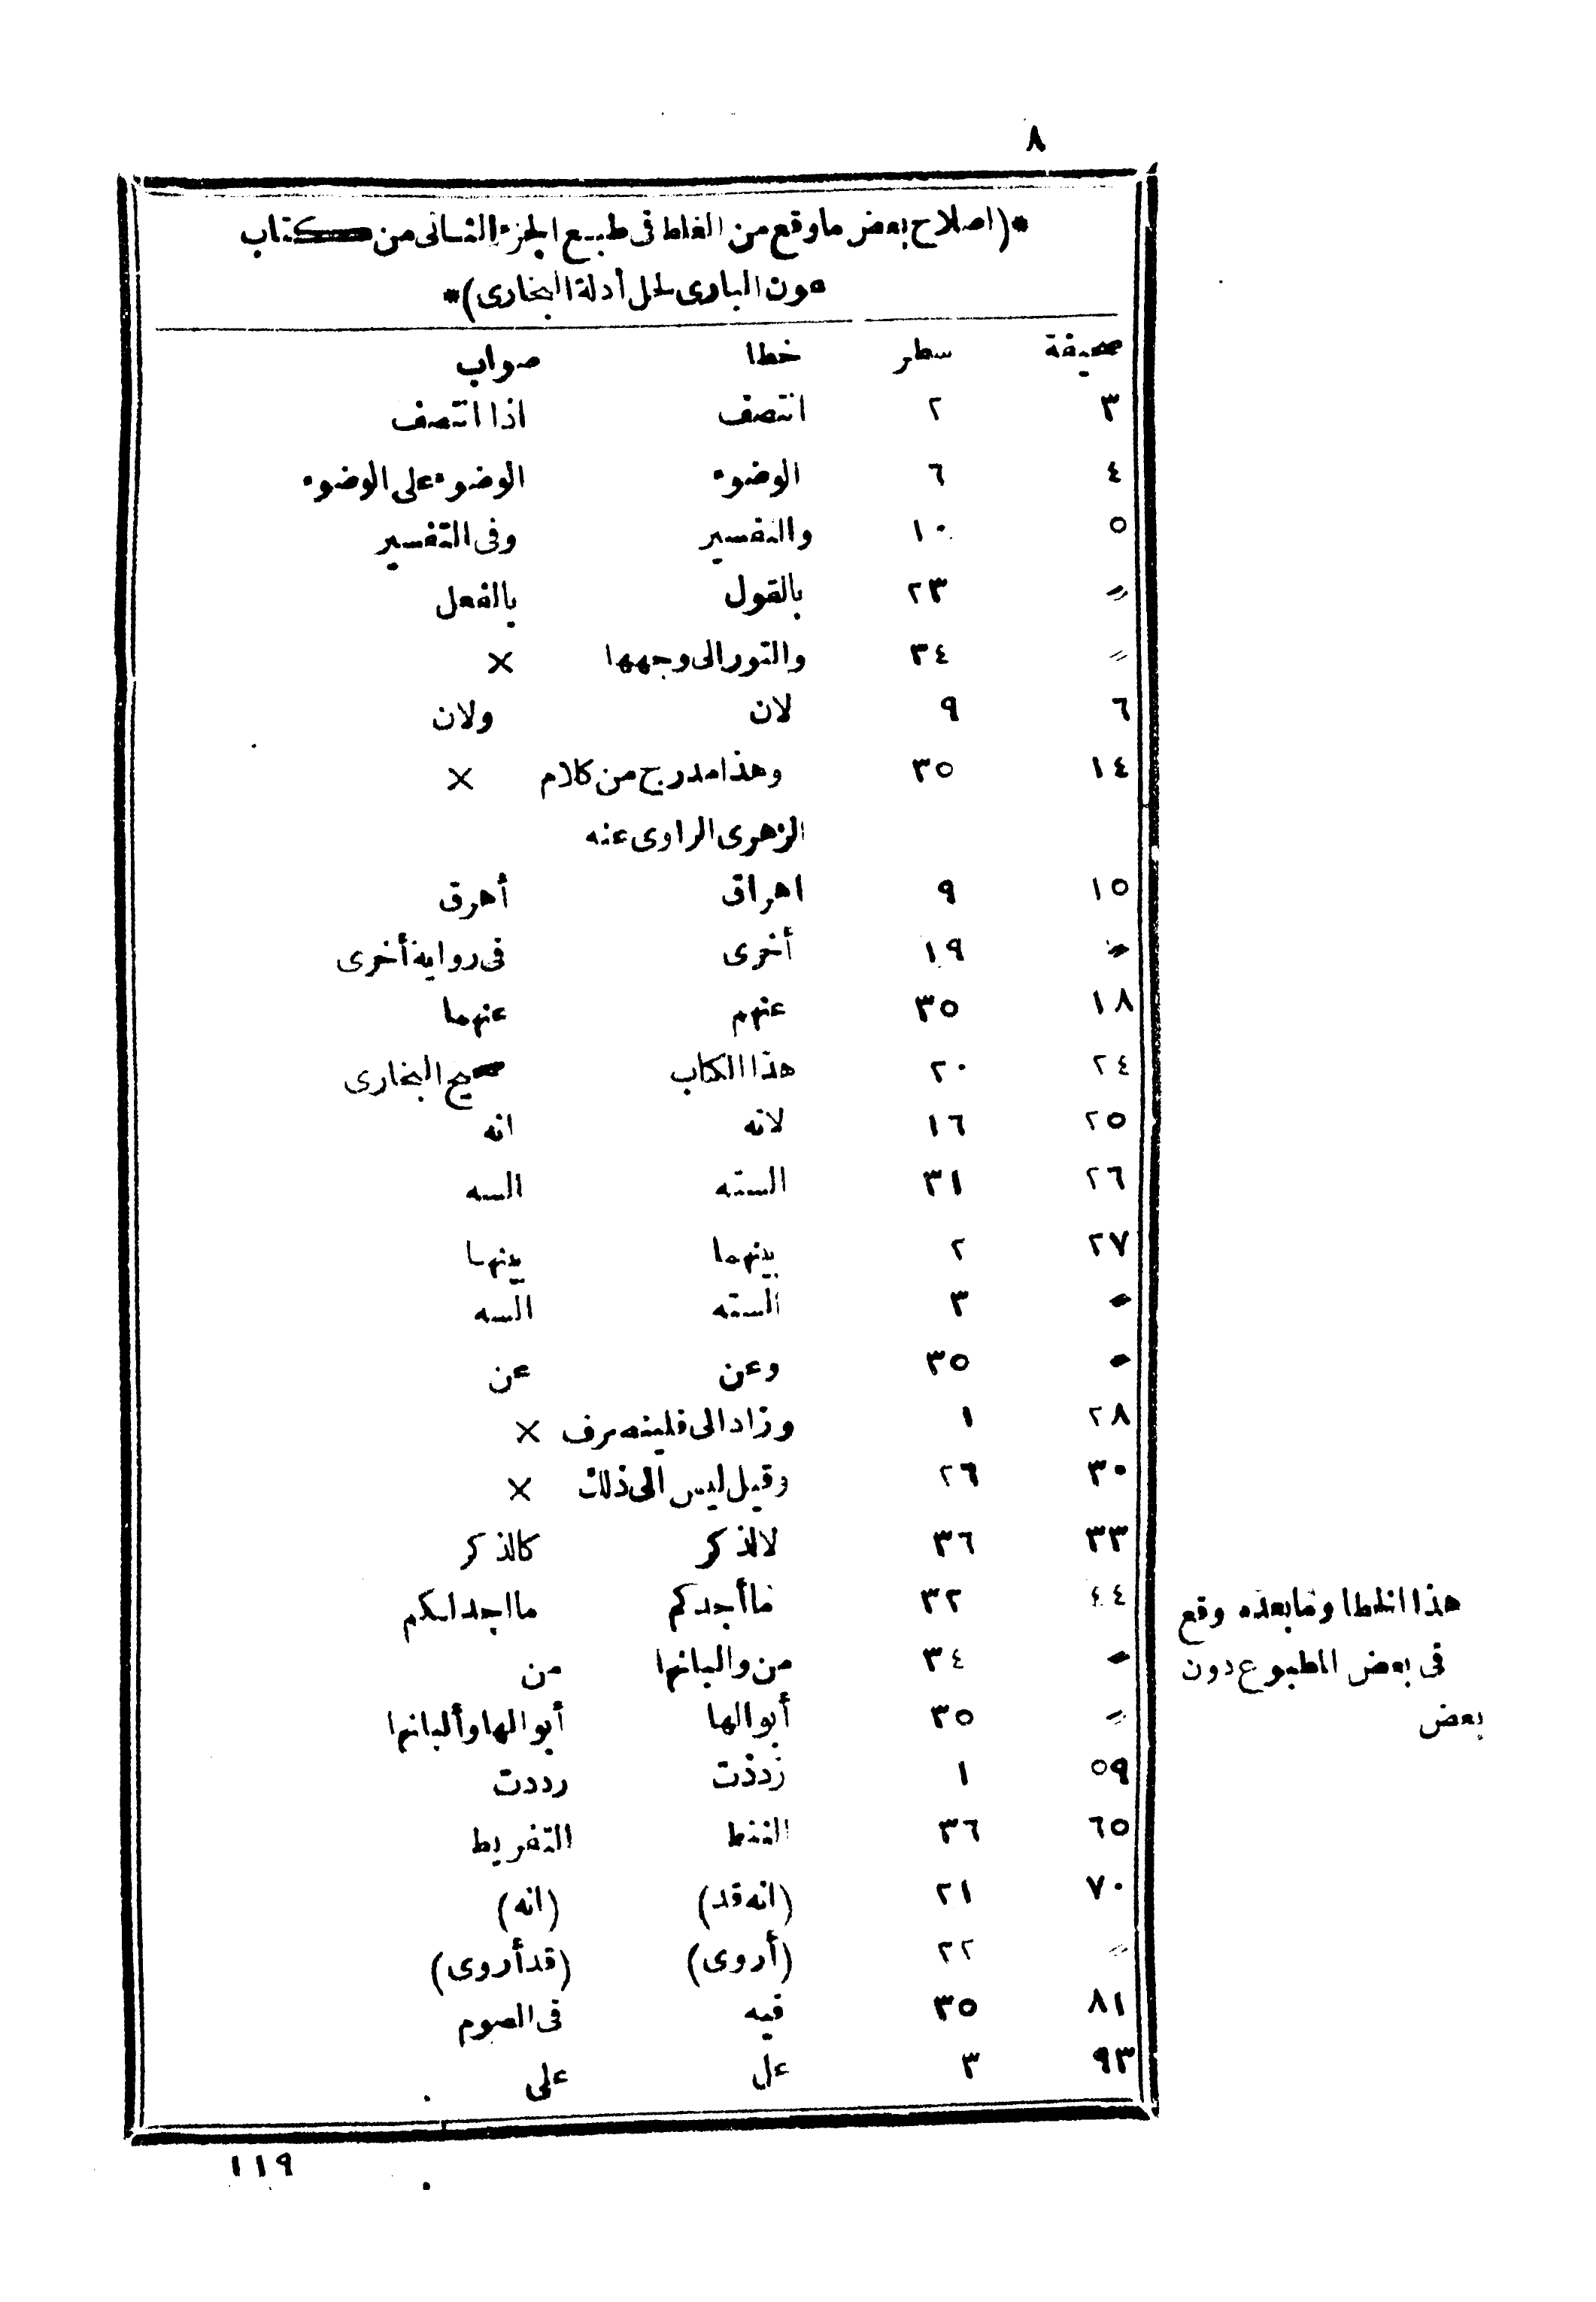 ٨
*(اصلاح بعض ما وقع من الغلط فى طبع الجزء الثانى من كتاب
عون البارى لحل أدلة البخارى)*
صحيفة سطر خطا صواب
٣ ٢ انتصف اذا انتصف
٤ ٦ الوضوء الوضوء على الوضوء
٥ ١٠ والتفسير وفى التفسير
〃 ٢٣ بالقول بالفعل
〃 ٣٤ والتور الى وجهها ×
٦ ٩ لان ولان
١٤ ٣٥ وهذا مدرج من كلام ×
الزهرى الراوى عنه
١٥ ٩ اهراق أهرق
〃 ١٩ أخرى فى رواية أخرى
١٨ ٣٥ عنهم عنهما
٢٤ ٢٠ هذا الكتاب صحيح البخارى
٢٥ ١٦ لانه انه
٢٦ ٣١ الستة السه
٢٧ ٢ بينهما بينها
〃 ٣ الستة السه
〃 ٣٥ وعن عن
٢٨ ١ وزاد الى فلينصرف ×
٣٠ ٢٦ وقيل ليس الى ذلك ×
٣٣ ٣٦ لالذكر كالذكر
٤٤ ٣٢ ما أجدكم ما اجد لكم
هذا الخطا وما بعده وقع
فى بعض المطبوع دون
بعض
〃 ٣٤ من والبانها من
〃 ٣٥ أبوالها أبوالها وألبانها
٥٩ ١ زددت رددت
٦٥ ٣٦ التفريط
٧٠ ٢١ (انه قد) (انه)
〃 ٢٢ (أروى) (قد أروى)
٨١ ٣٥ فيه فى الصوم
٩٣ ٣ عل على
١١٩